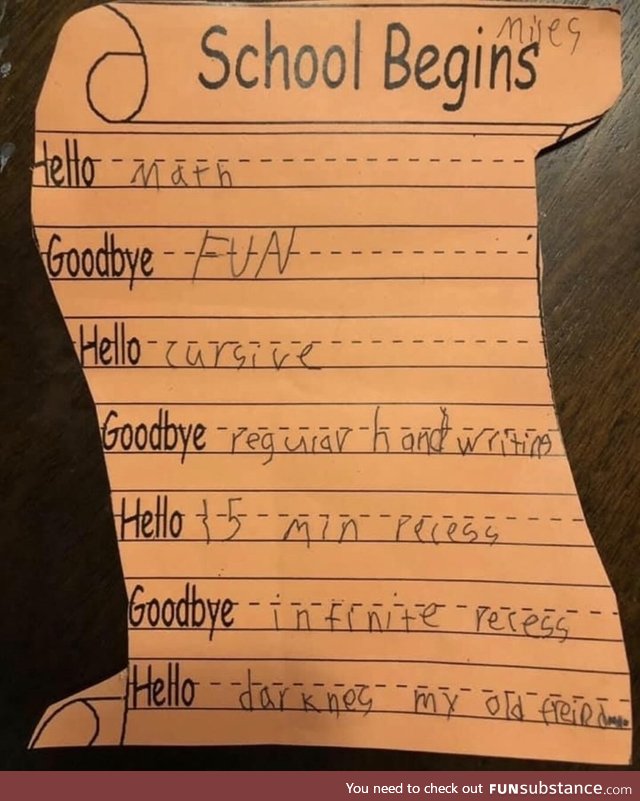 Miles
School Begins
Hello math
Goodbye FUN
Hello cursive
Goodbye regular handwriting
Hello 15 min recess
Goodbye infinite recess
Hello darknes my old freind....
You need to check out FUNsubstance.com